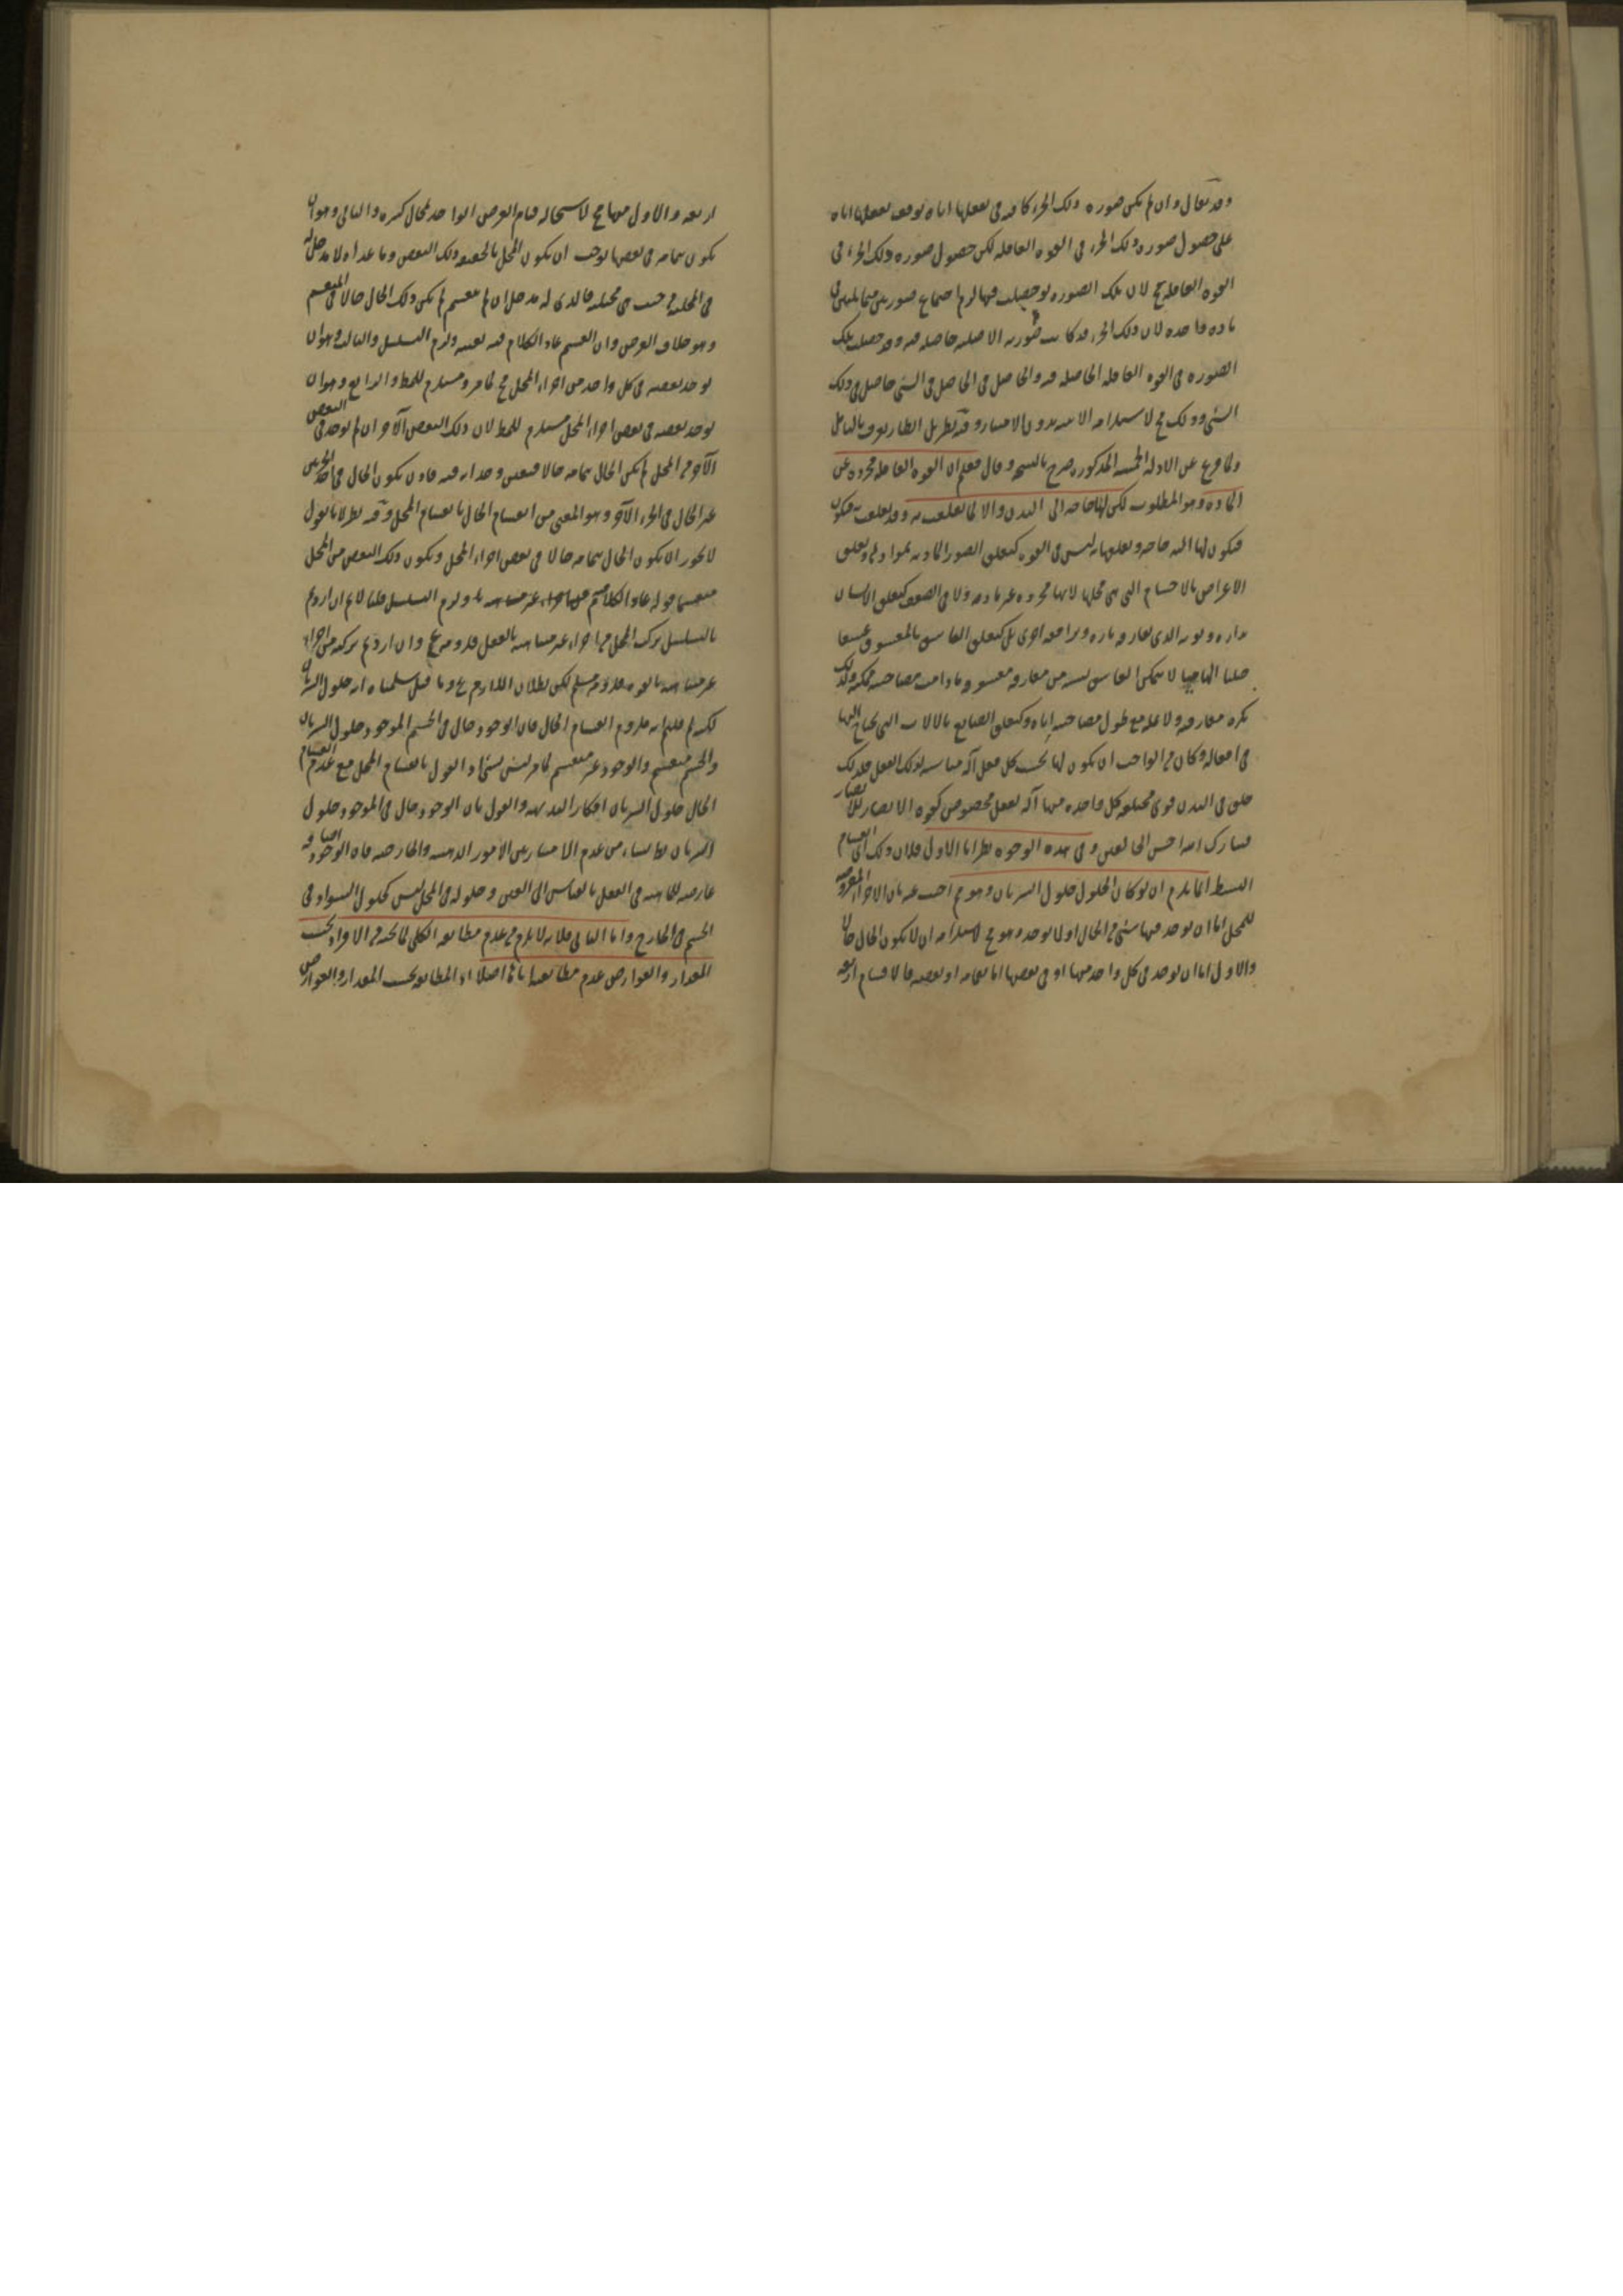 وقد يقال وان لم يكن صورة ذلك الجزء كافية في تعقلها اياه توقف تعقلها اياه
على حصول صورة ذلك الجزء في القوة العاقلة لكن حصول صورة ذلك الجزء في
القوة العاقلة مح لان تلك الصورة لو حصلت فيها لزم اجتماع صورتين متماثلتين في
مادة واحدة لان ذلك الجزء قد كانت صورته الاصلية حاصلة فيه وقد حصلت تلك
الصورة في القوة العاقلة الحاصلة فيه والحاصل في الحاصل في الشئ حاصل في ذلك
الشئ وذلك مح لاستلزامه الاثنينية بدون الامتياز وفيه نظر بل انظار يعرف بالتامل
ولما فرغ عن الادلة الخمسة المذكورة صرح بالنتيجة وقال فعلم ان القوة العاقلة مجردة عن
المادة وهو المطلوب لكن لها حاجة الى البدن والا لما تعلقت به وقد تعلقت به فيكون
فيكون لها اليه حاجة وتعلقها به ليس في القوة كتعلق الصور المادية بموادها وتعلق
الاعراض بالاجسام التي هي محلها لانها مجردة غير مادية ولا في الضعف كتعلق الانسان
بداره وثوبه الذي يفارقه تارة ويراجعه اخرى بل كتعلق العاشق بالمعشوق عشقا
جبليا الهاميا لا يتمكن العاشق بسببه من مفارقة معشوقه ما دامت مصاحبته ممكنة ولذلك
تكره مفارقته ولا تمله مع طول مصاحبته اياه وكتعلق الصانع بالالات التي يحتاج اليها
في افعاله وكان من الواجب ان يكون لها بحسب كل فعل آلة مناسبة لذلك الفعل فلذلك
خلق في البدن قوى مختلفة كل واحدة منها آلة لفعل مخصوص كقوة الابصار للابصار
فتبارك الله احسن الخالقين وفي هذه الوجوه نظر اما الاول فلان ذلك اي انقسام
البسيط انما يلزم ان لو كان الحلول حلول السريان وهو مم اجيب عنه بان الاجزاء المفروضة
للمحل اما ان يوجد فيها شئ من الحال او لا يوجد وهو مح لاستلزامه ان لا يكون الحال حالا
والاول اما ان يوجد في كل واحد منها او في بعضها اما بتمامه او بعضه فالاقسام اربعة
اربعة والاول منها مح لاستحالة قيام العرض الواحد بمحال كثيرة والثاني وهو ان
يكون بتمامه في بعضها يوجب ان يكون المحل بالحقيقة ذلك البعض وما عداه لا مدخل له
في المحلية من حيث هي محلية فالذي له مدخل ان لم ينقسم لم يكن ذلك الحال حالا في المنقسم
وهو خلاف الفرض وان انقسم عاد الكلام فيه بعينه ولزم التسلسل والثالث وهو ان
يوجد بعضه في كل واحد من اجزاء المحل مح لما مر ومستلزم للمط والرابع وهو ان
يوجد بعضه في بعض اجزاء المحل مستلزم للمط لان ذلك البعض الآخر ان لم يوجد في البعض
الآخر من المحل لم يكن الحال بتمامه حالا فتعين وجدانه فيه فاذن يكون الحال في احد الجزئين
غير الحال في الجزء الآخر وهو المعني من انقسام الحال بانقسام المحل وفيه نظر لانا نقول
لا يجوز ان يكون الحال بتمامه حالا في بعض اجزاء المحل ويكون ذلك البعض من المحل
منقسما قوله عاد الكلام فيه ولزم التسلسل قلنا لا نم ان اردتم
بالتسلسل تركب المحل من اجزاء غير متناهية بالفعل فلزومه مم وان اردتم تركبه من اجزاء
غير متناهية بالقوة فلزومه مسلم لكن بطلان اللازم مم وما قيل سلمنا انه حلول السريان
لكن لم قلتم انه ملزوم انقسام الحال فان الوجود حال في الجسم الموجود حلول السريان
والجسم منقسم والوجود غير منقسم لما مر ليس بشئ اذ القول بانقسام المحل مع عدم انقسام
الحال حلول السريان انكار البديهة والقول بان الوجود حال في الموجود حلول
السريان بط ينشاء من عدم الامتياز بين الامور الذهنية والخارجية فان الوجود
عارض للماهية في العقل بالقياس الى العين وحلوله في المحل ليس كحلول السواد في
الجسم في الخارج واما الثاني فلانه لا يلزم من عدم مطابقة الكلي لما تحته من الافراد بحسب
المقدار والعوارض عدم مطابقته اياها اصلا اذ المطابقة بحسب المقدار والعوارض